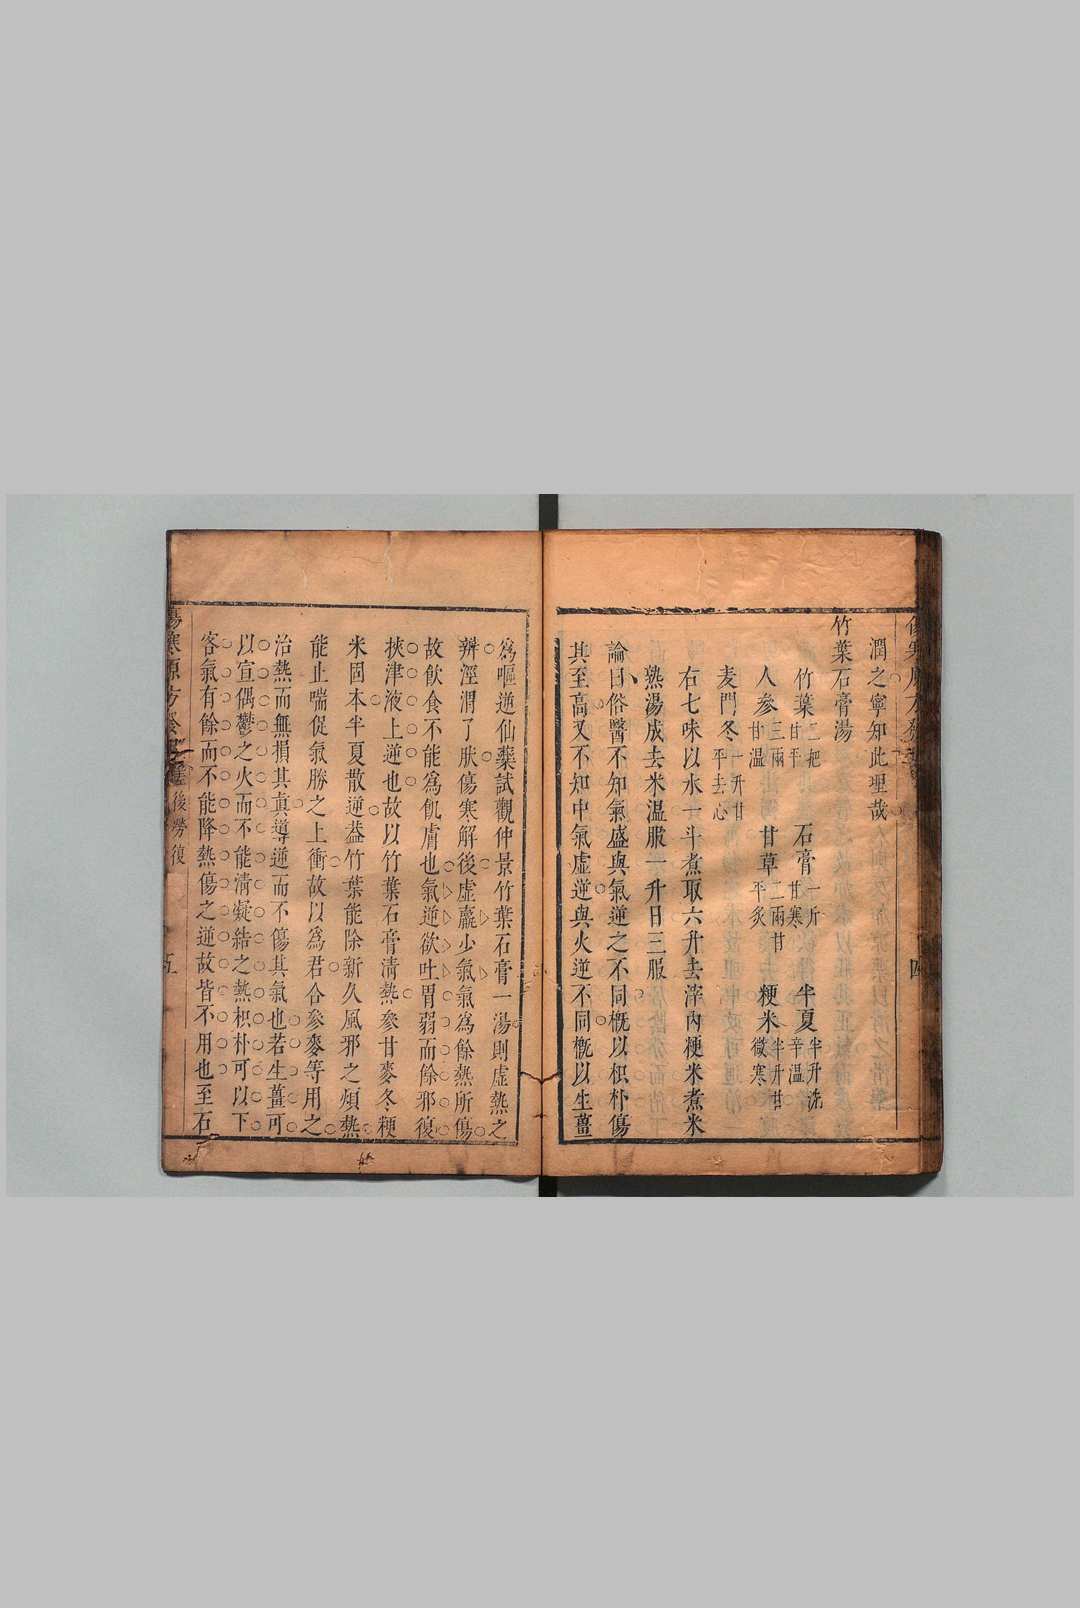 潤之寧知此理哉
竹葉石膏湯
竹葉二把甘平 石膏一斤甘寒 半夏半升洗辛溫
人參三兩甘溫 甘草二兩甘平炙 粳米半升甘微寒
麦門冬一升甘平去心
右七味以水一斗煮取六升去滓內粳米煮米
熟湯成去米溫服一升日三服
論曰俗醫不知氣盛與氣逆之不同概以枳朴傷
其至高又不知中氣虛逆與火逆不同概以生薑
為嘔逆仙藥試觀仲景竹葉石膏一湯則虛熱之
辨涇渭了肰傷寒解後虛羸少氣氣為餘熱所傷
故飲食不能為飢膚也氣逆欲吐胃弱而餘邪復
挾津液上逆也故以竹葉石膏清熱參甘麥冬粳
米固本半夏散逆葢竹葉能除新久風邪之煩熱
能止喘促氣勝之上衝故以為君合參麥等用之
治熱而無損其真導逆而不傷其氣也若生薑可
以宣偶鬱之火而不能清凝結之熱枳朴可以下
客氣有餘而不能降熱傷之逆故皆不用也至石
後勞復